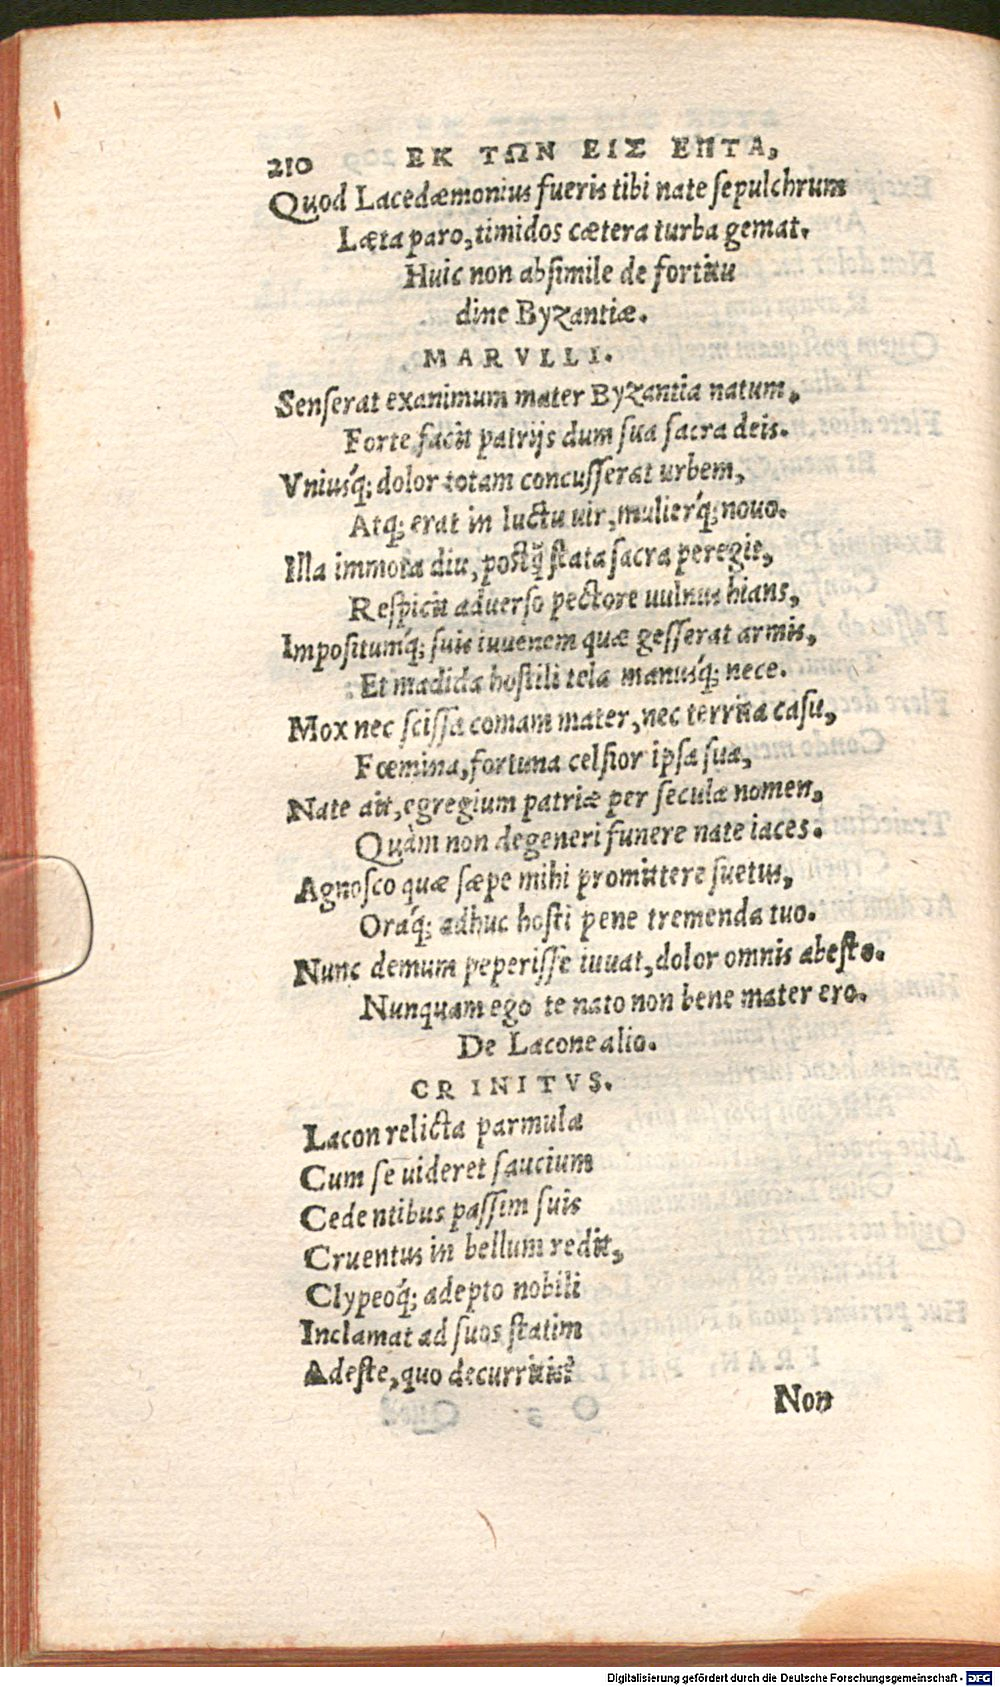 210 ΕΚ ΤΩΝ ΕΙΣ ΕΠΤΑ,
Quod Lacedæmonius fueris tibi nate ſepulchrum
Læta paro, timidos cætera turba gemat.
Huic non abſimile de fortitu
dine Byzantiæ.
MARVLLI.
Senſerat exanimum mater Byzantia natum,
Forte facit patrijs dum ſua ſacra deis.
Vniusq́; dolor totam concuſſerat urbem,
Atq; erat in luctu uir, mulierq́; nouo.
Illa immota diu, postq̃ ſtata ſacra peregit,
Reſpicit aduerſo pectore uulnus hians,
Impoſitumq́; ſuis iuuenem quæ geſſerat armis,
Et madida hoſtili tela manusq́; nece.
Mox nec ſciſſa comam mater, nec territa caſu,
Fœmina, fortuna celſior ipſa ſua,
Nate ait, egregium patriæ per ſecula nomen,
Quàm non degeneri funere nate iaces.
Agnoſco quæ ſæpe mihi promittere ſuetus,
Oraq́; adhuc hoſti pene tremenda tuo.
Nunc demum peperiſſe iuuat, dolor omnis abeſto.
Nunquam ego te nato non bene mater ero.
De Lacone alio.
CRINITVS.
Lacon relicta parmula
Cum ſe uideret ſaucium
Cedentibus paſſim ſuis
Cruentus in bellum redit,
Clypeoq́; adepto nobili
Inclamat ad ſuos ſtatim
Adeſte, quo decurritis?
Non
Digitalisierung gefördert durch die Deutsche Forschungsgemeinschaft - DFG